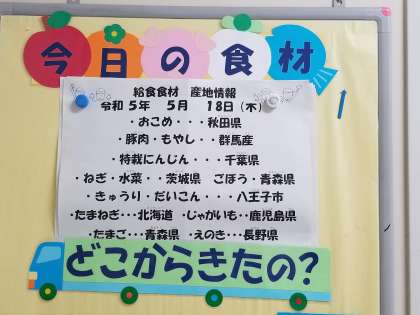 今日の食材
給食食材 産地情報
令和 5年 5月 18日(木)
・おこめ・・・秋田県
・豚肉・もやし・・群馬産
・特裁にんじん・・・千葉県
・ねぎ・水菜・・茨城県 ごぼう・青森県
・きゅうり・だいこん・・・八王子市
・たまねぎ・・・北海道 ・じゃがいも・・鹿児島県
・たまご・・・青森県 ・えのき・・・長野県
どこからきたの?